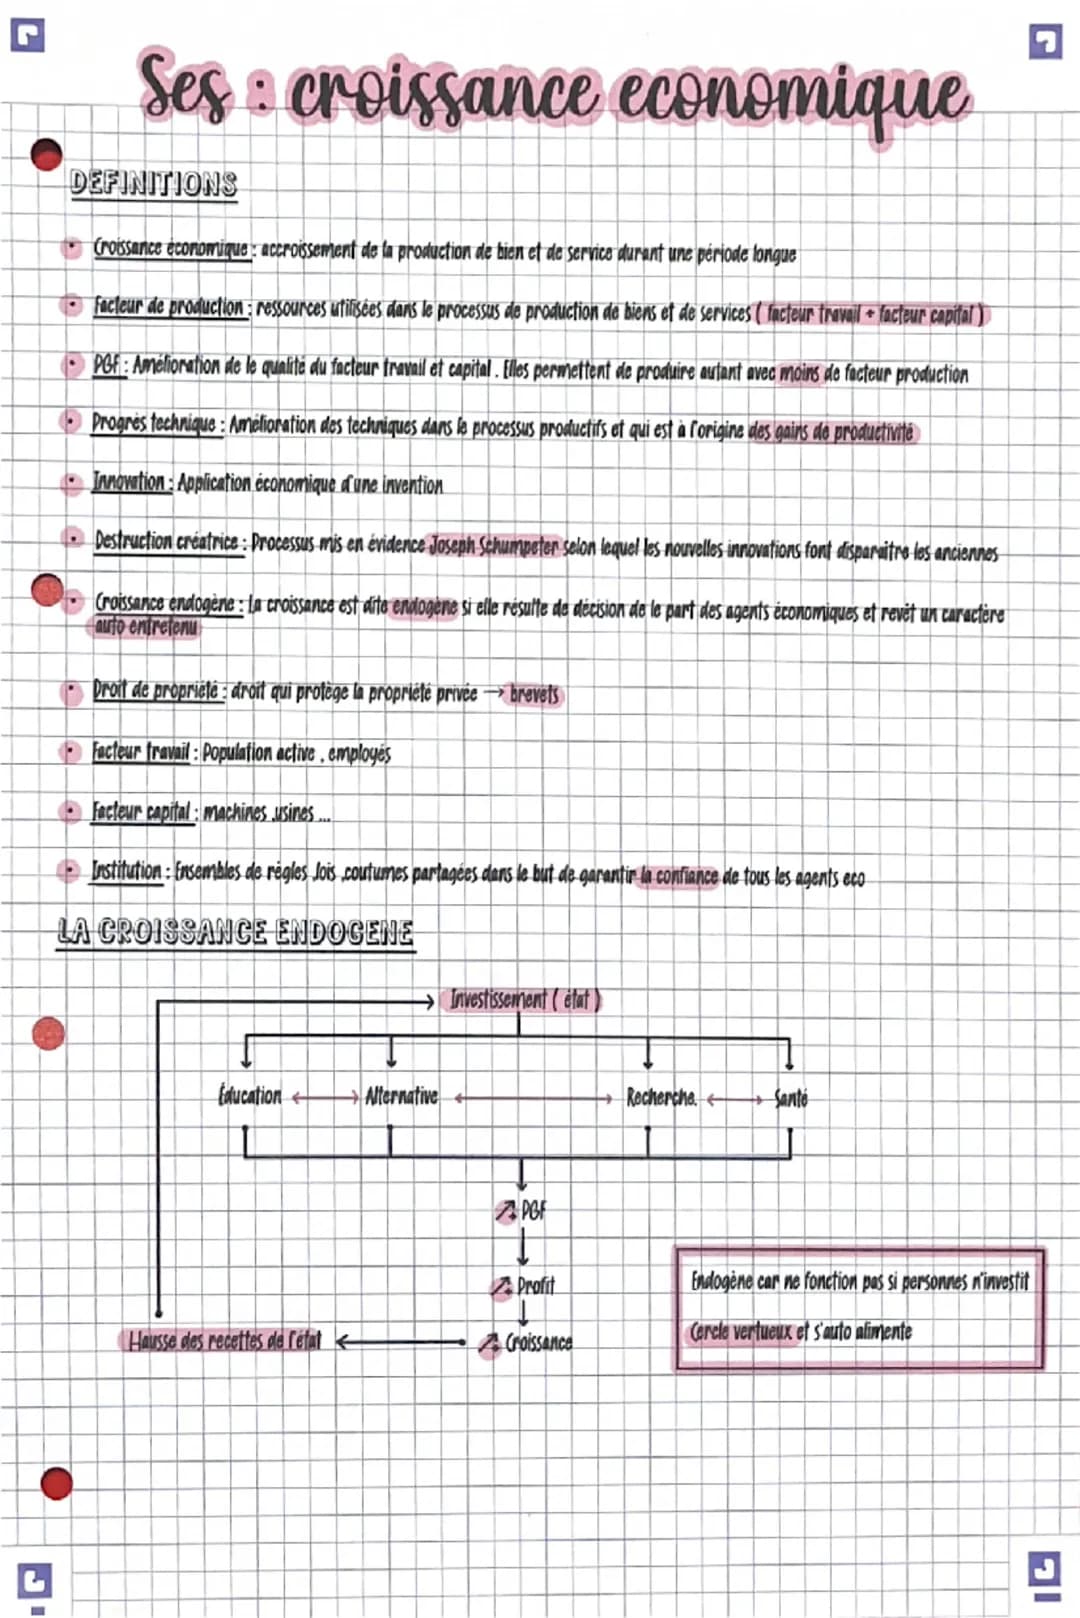 Ses : croissance economique
DEFINITIONS
• Croissance économique : accroissement de la production de bien et de service durant une période longue
• Facteur de production : ressources utilisées dans le processus de production de biens et de services ( facteur travail + facteur capital )
• PGF : Amélioration de le qualité du facteur travail et capital . Elles permettent de produire autant avec moins de facteur production
• Progrès technique : Amélioration des techniques dans le processus productifs et qui est à l'origine des gains de productivité
• Innovation : Application économique d'une invention
• Destruction créatrice : Processus mis en évidence Joseph Schumpeter selon lequel les nouvelles innovations font disparaitre les anciennes
• Croissance endogène : la croissance est dite endogène si elle résulte de décision de le part des agents économiques et revêt un caractère
auto entretenu
• Droit de propriété : droit qui protège la propriété privée → brevets
• Facteur travail : Population active , employés
• Facteur capital : machines ,usines ...
• Institution : Ensembles de règles ,lois ,coutumes partagées dans le but de garantir la confiance de tous les agents eco
LA CROISSANCE ENDOGENE
Investissement ( état )
Éducation ↔ Alternative ↔ Recherche. ↔ Santé
↗ PGF
↗ Profit
↗ Croissance
Hausse des recettes de l'état
Endogène car ne fonction pas si personnes n'investit
Cercle vertueux et s'auto alimente